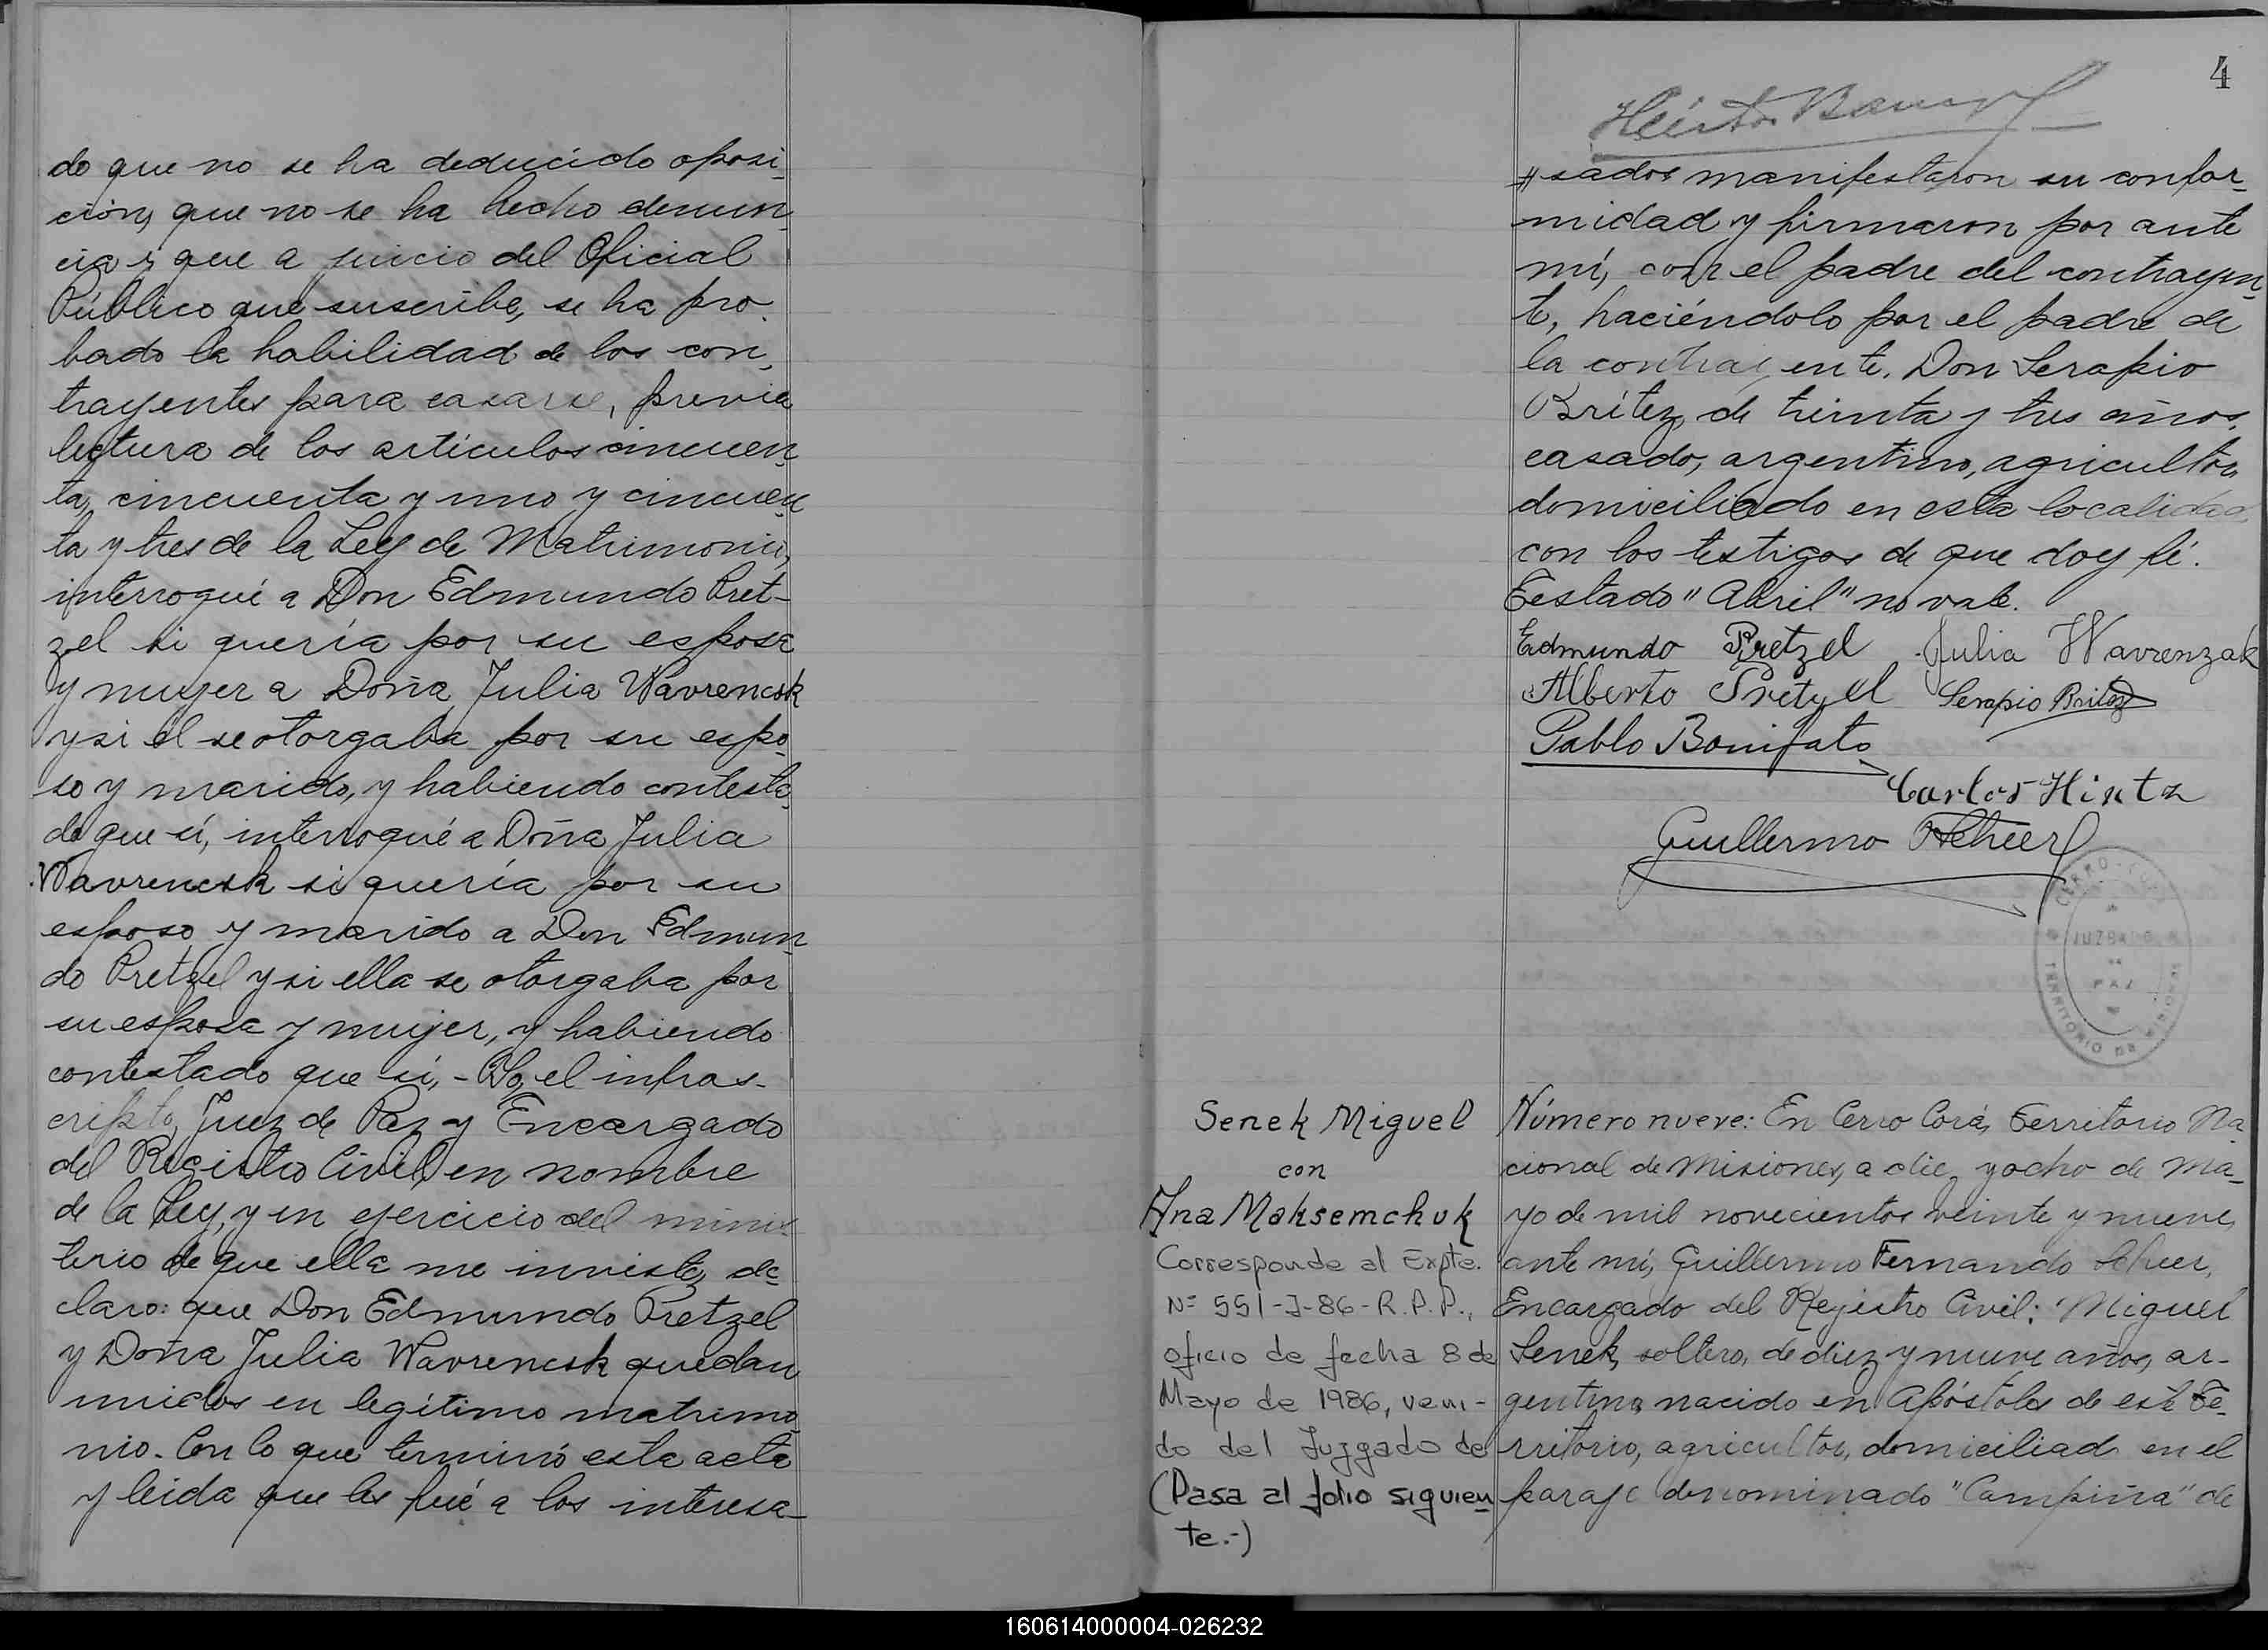 do que no se ha deducido oposi-
ción, que no se ha hecho denun-
cia y que a juicio del Oficial
Público que suscribe, se ha pro-
bado la habilidad de los con-
trayentes para casarse, previa
lectura de los artículos cincuen-
ta, cincuenta y uno y cincuen-
ta y tres de la Ley de Matrimonio,
interrogué a Don Edmundo Pret-
zel si quería por su esposa
y mujer a Doña Julia Wavrencsk
y si él se otorgaba por su espo-
so y marido, y habiendo contesta-
do que sí, interrogué a Doña Julia
Wavrencsk si quería por su
esposo y marido a Don Edmun-
do Pretzel y si ella se otorgaba por
su esposa y mujer, y habiendo
contestado que sí, - Yo, el infras-
cripto, Juez de Paz y Encargado
del Registro Civil, en nombre
de la Ley, y en ejercicio del minis-
terio de que ella me inviste, de-
claro: que Don Edmundo Pretzel
y Doña Julia Wavrencsk quedan
unidos en legítimo matrimo-
nio. Con lo que terminó esta acta
y leída que les fué a los interesa-
4
Héctor
#sados manifestaron su confor-
midad y firmaron por ante
mí, con el padre del contrayen-
te, haciéndolo por el padre de
la contrayente, Don Serapio
Brítez, de treinta y tres años,
casado, argentino, agricultor,
domiciliado en esta localidad
con los testigos de que doy fé.
Testado "Abril" no vale.
Edmundo Pretzel Julia Wavrenzak
Alberto Pretzel Serapio Britez
Pablo Bonifato
Carlos Hintz
Guillermo Scheer
CERRO-CORÁ
JUZGADO
DE
PAZ
TERRITORIO DE MISIONES
Senek Miguel
con
Ana Maksemchuk
Corresponde al Expte.
Nº 551-J-86-R.P.P.,
oficio de fecha 8 de
Mayo de 1986, veni-
do del Juzgado de
(Pasa al folio siguien
te.-)
Número nueve: En Cerro Corá, Territorio Na-
cional de Misiones, a diez y ocho de Ma-
yo de mil novecientos veinte y nueve,
ante mí, Guillermo Fernando Scheer,
Encargado del Registro Civil: Miguel
Senek, soltero, de diez y nueve años, ar-
gentino, nacido en Apóstoles de este Te-
rritorio, agricultor, domiciliado en el
paraje denominado "Campiña" de
160614000004-026232